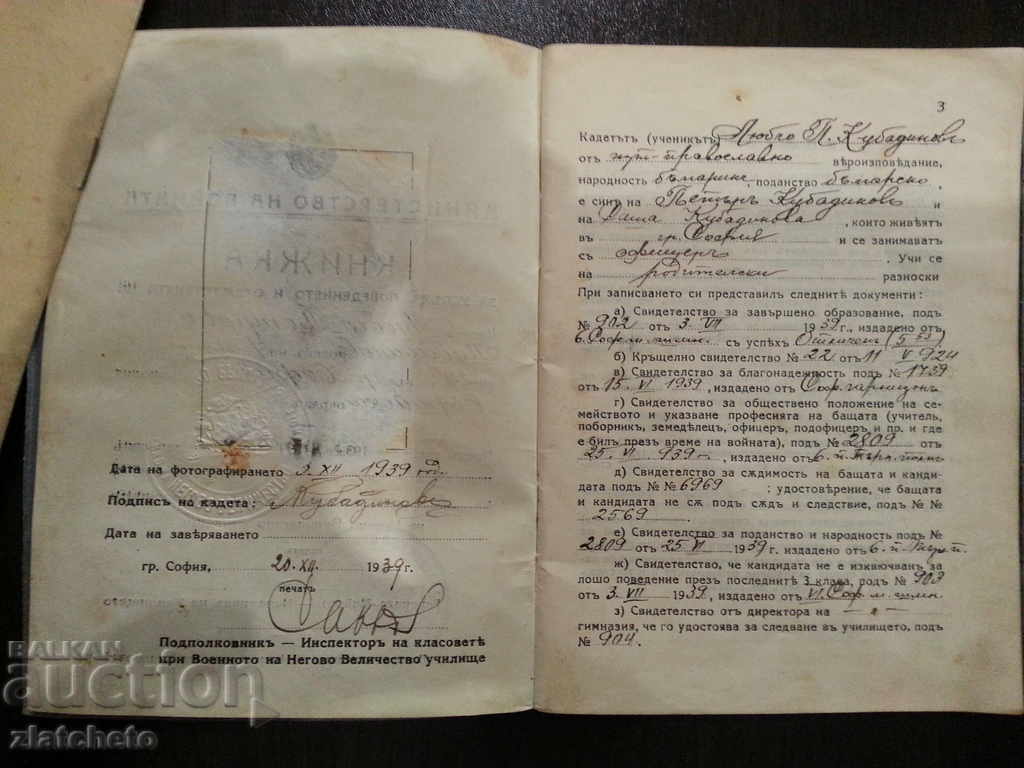 Дата на фотографирането 3. XII 1939 год
Подпись на кадета: Кубадиновъ
Дата на завѣряването
гр. София, 20. XII. 1939 г.
печать
Подполковникъ — Инспекторъ на класоветѣ
при Военното на Негово Величество училище
3
Кадетътъ (ученикътъ) Любчо П. Кубадиновъ
отъ православно вѣроизповѣдание,
народность българинъ, поданство българско,
е синъ на Петъръ Кубадиновъ и
на Даша Кубадинова, които живѣятъ
въ гр. София и се занимаватъ
съ офицеръ. Учи се
на родителски разноски
При записването си представилъ следнитѣ документи:
а) Свидетелство за завършено образование, подъ
№ 902 отъ 3. VII 1939 г., издадено отъ
съ успѣхъ Отличенъ (5.53)
б) Кръщелно свидетелство № 22 отъ 11 V 924
в) Свидетелство за благонадежность подъ № 1739
отъ 15. VI 1939, издадено отъ Соф. гарнизонъ
г) Свидетелство за обществено положение на се-
мейството и указване професията на бащата (учитель,
поборникъ, земедѣлецъ, офицеръ, подофицеръ и пр. и где
е билъ презъ време на войната), подъ № 2809 отъ
25. VI 939 г., издадено отъ
д) Свидетелство за сѫдимость на бащата и канди-
дата подъ №№ 6969; удостовѣрение, че бащата
и кандидата не сѫ подъ сѫдъ и следствие, подъ № №
2569.
е) Свидетелство за поданство и народность подъ №
2809 отъ 25 VI 1939 г. издадено отъ
ж) Свидетелство, че кандидата не е изключванъ за
лошо поведение презъ последнитѣ 3 класа, подъ № 903
отъ 3. VII 1939, издадено отъ VI. Соф. м. гимн.
з) Свидетелство отъ директора на — „ —
гимназия, че го удостоява за следване въ училището, подъ
№ 904.
BALKAN
auction
zlatcheto